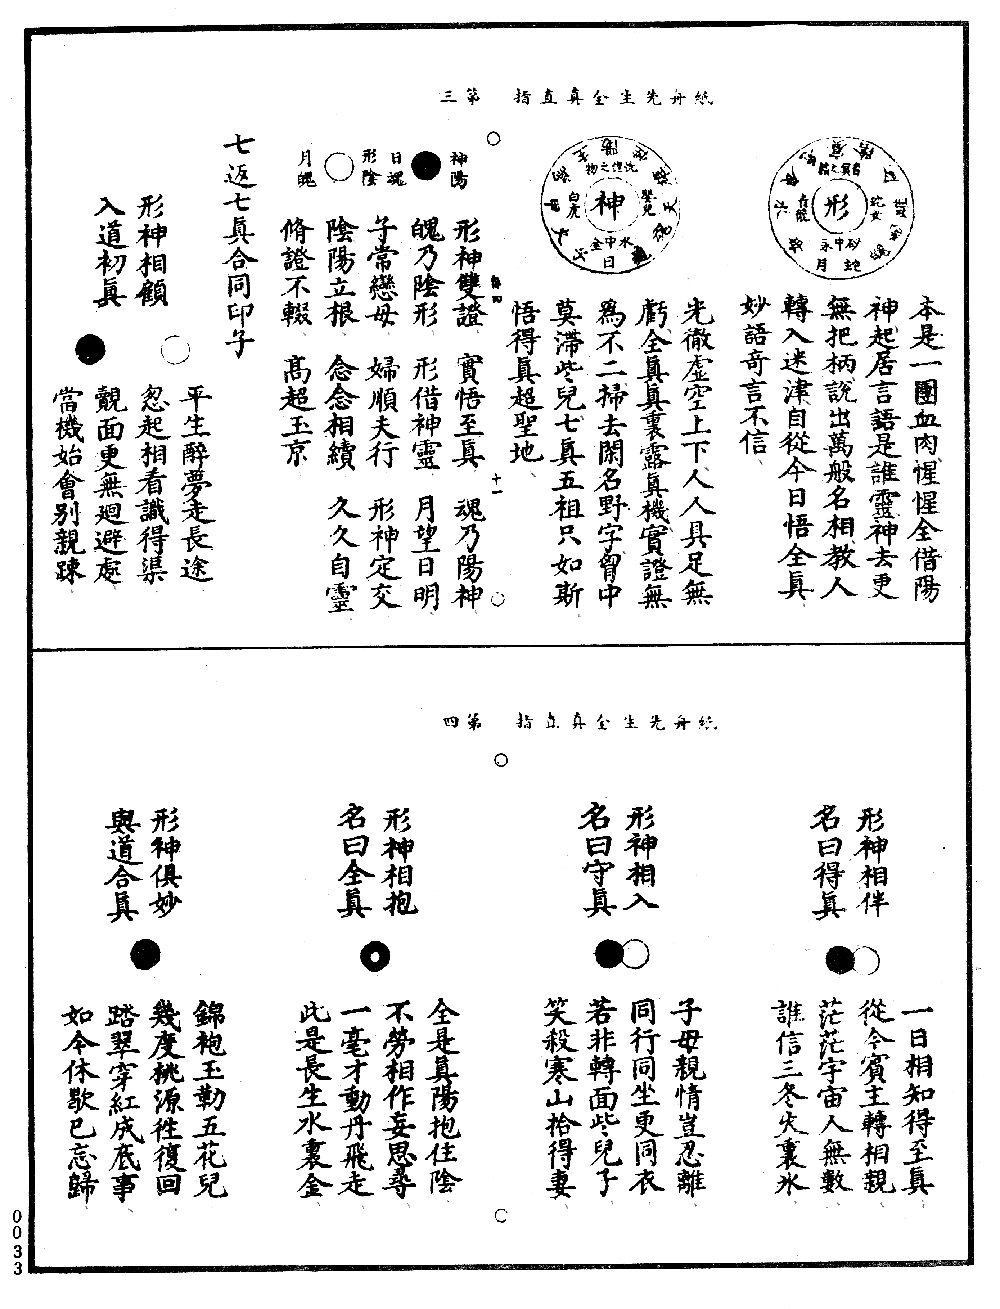 紙舟先生全真直指 第三
形
神
本是一團血肉惺惺全借陽
神起居言語是誰靈神去更
無把柄說出萬般名相教人
轉入迷津自從今日悟全眞
妙語奇言不信
光徹虛空上下人人具足無
虧全眞眞裏露眞機實證無
爲不二掃去閑名野字胷中
莫滯些兒七眞五祖只如斯
悟得眞超聖地
神陽
日魂
形陰
月魄
形神雙證 實悟至眞 魂乃陽神
魄乃陰形 形借神靈 月望日明
子常戀母 婦順夫行 形神定交
陰陽立根 念念相續 久久自靈
脩證不輟 高超玉京
十一
七返七眞合同印子
形神相顧
入道初眞
平生醉夢走長途
忽起相看識得渠
覿面更無廻避處
當機始會別親踈
紙舟先生全真直指 第四
形神相伴
名曰得眞
一日相知得至眞
從今賓主轉相親
茫茫宇宙人無數
誰信三冬火裏氷
形神相入
名曰守眞
子母親情豈忍離
同行同坐更同衣
若非轉面些兒子
笑殺寒山拾得妻
形神相抱
名曰全眞
全是眞陽抱住陰
不勞相作妄思尋
一毫才動丹飛走
此是長生水裏金
形神俱妙
與道合眞
錦袍玉勒五花兒
幾度桃源徃復回
踏翠穿紅成底事
如今休歇已忘歸
0033